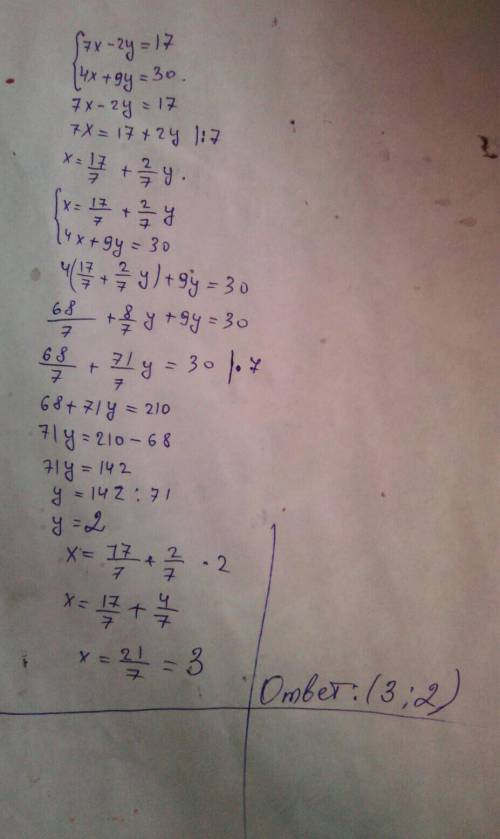 {7x-2y=17
4x+9y=30.
7x-2y=17
7x=17+2y |:7
x=17/7+2/7y.
{x=17/7+2/7y
4x+9y=30
4(17/7+2/7y)+9y=30
68/7+8/7y+9y=30
68/7+71/7y=30 |·7
68+71y=210
71y=210-68
71y=142
y=142:71
y=2
x=17/7+2/7·2
x=17/7+4/7
x=21/7=3
Ответ:(3;2)